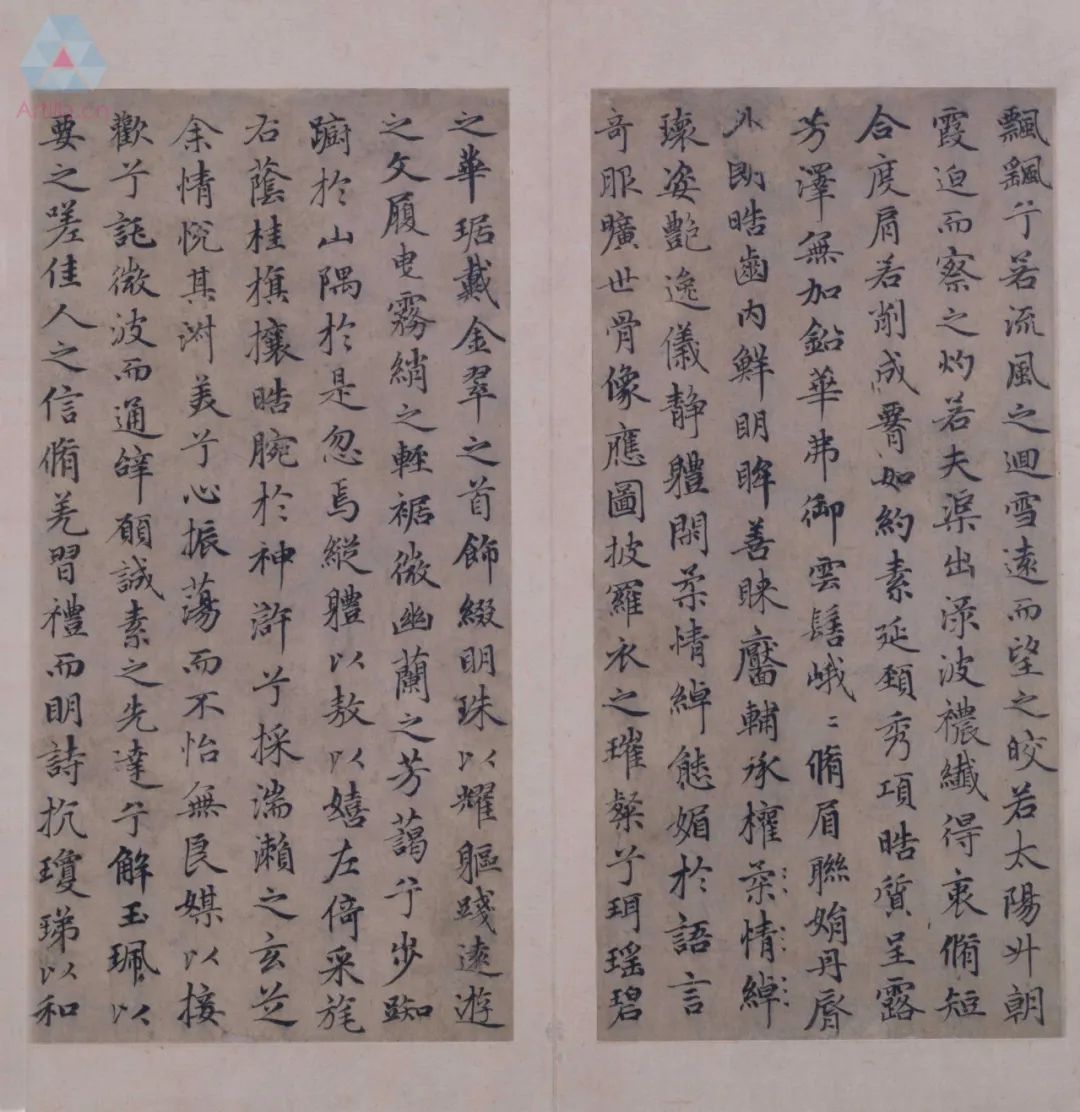 飄颻兮若流風之迴雪遠而望之皎若太陽升朝
霞迫而察之灼若夫渠出淥波襛纖得衷脩短
合度肩若削成䙅如約素延頸秀項皓質呈露
芳澤無加鉛華弗御雲髻峨〻脩眉聯娟丹脣
外朗皓齒內鮮明眸善睞靨輔承權柔情綽
瓌姿艷逸儀靜體閑柔情綽態媚於語言
奇服曠世骨像應圖披羅衣之璀粲兮珥瑤碧
之華琚戴金翠之首飾綴明珠以耀軀踐遠遊
之文履曳霧綃之輕裾微幽蘭之芳藹兮步踟
躕於山隅於是忽焉縱體以敖以嬉左倚采旄
右蔭桂旗攘皓腕於神滸兮採湍瀨之玄芝
余情悅其淑美兮心振蕩而不怡無良媒以接
歡兮託微波而通辝願誠素之先達兮解玉珮以
要之嗟佳人之信脩羌習禮而明詩抗瓊珶以和
Artlip.cn